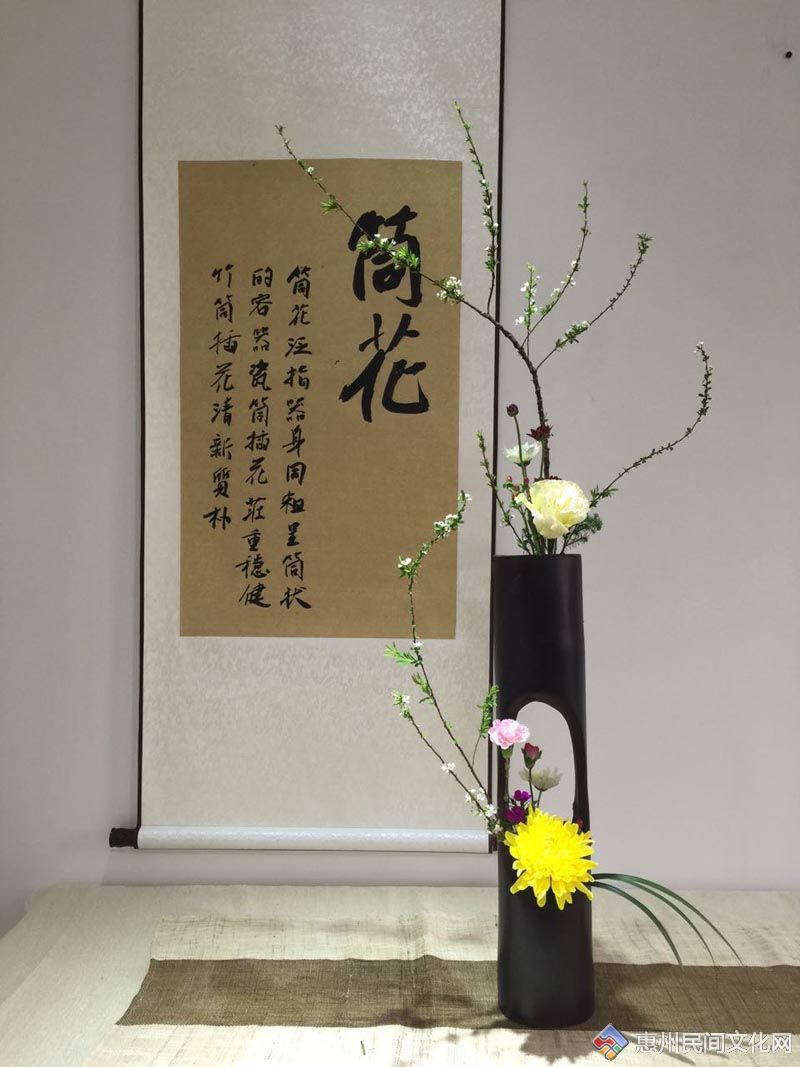 筒花
筒花泛指器身同粗呈筒状
的容器瓷筒插花莊重穩健
竹筒插花清新質朴
惠州民间文化网